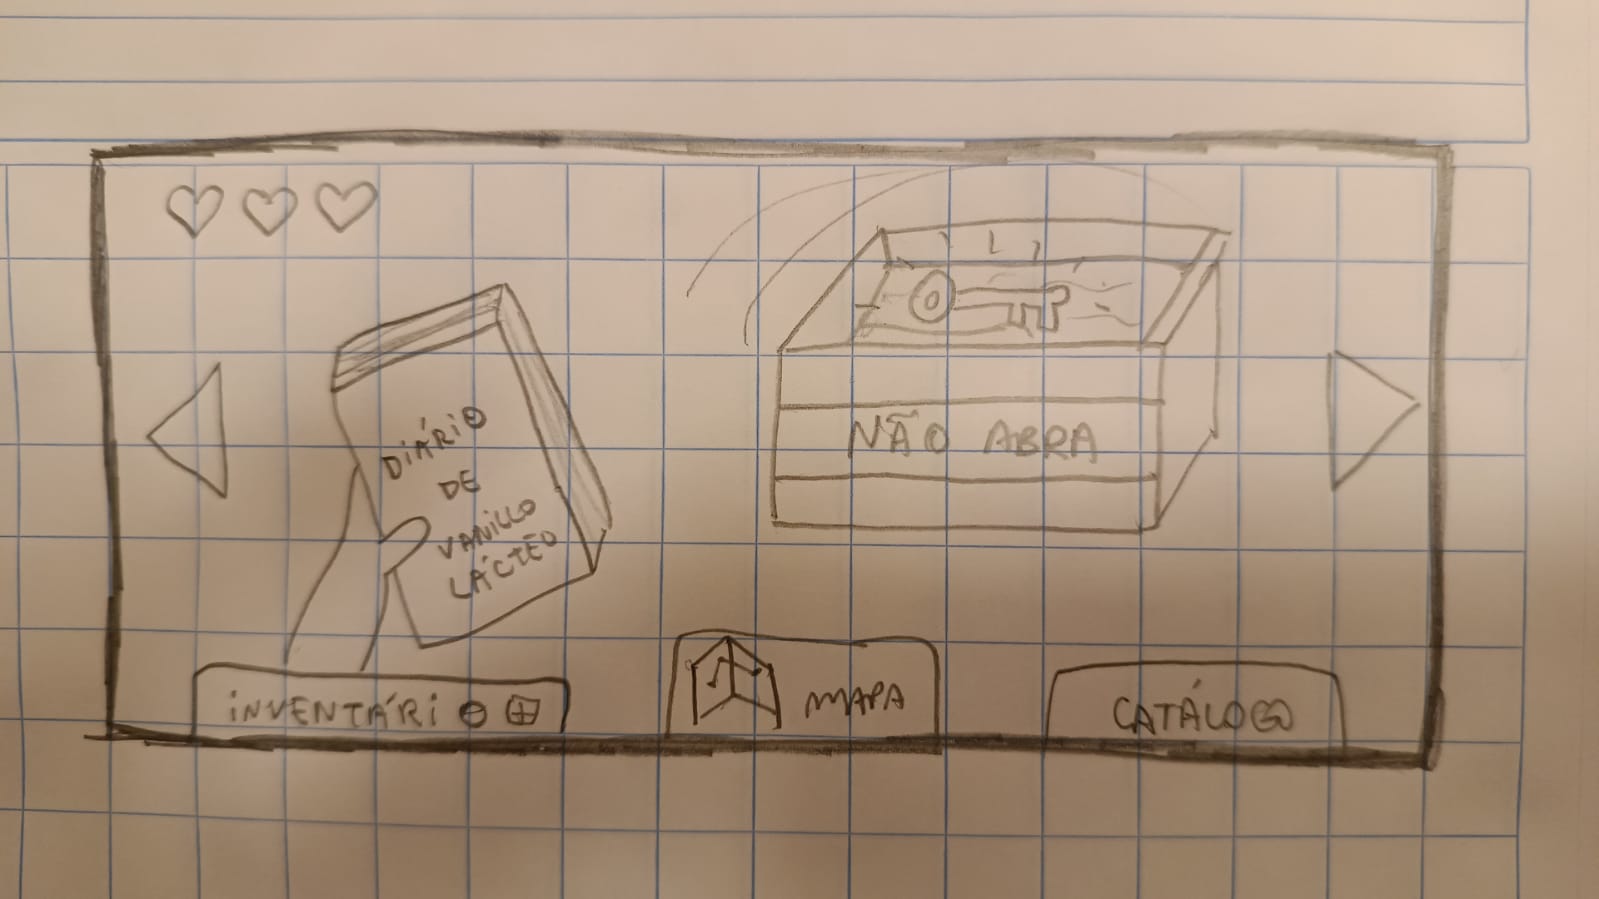 DIÁRIO
DE
VANILLO
LÁCTEO
NÃO ABRA
INVENTÁRIO
MAPA
CATÁLOGO